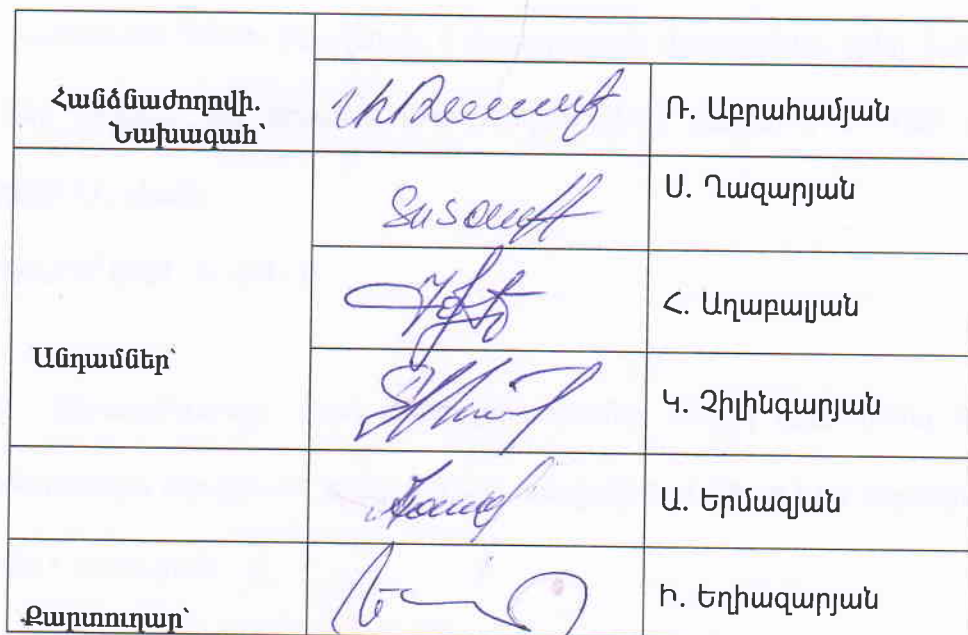 Հանձնաժողովի.
Նախագահ՝
Ռ. Աբրահամյան
Ս. Ղազարյան
Հ. Աղաբալյան
Անդամներ՝
Կ. Չիլինգարյան
Ա. Երմազյան
Քարտուղար՝
Ի. Եղիազարյան